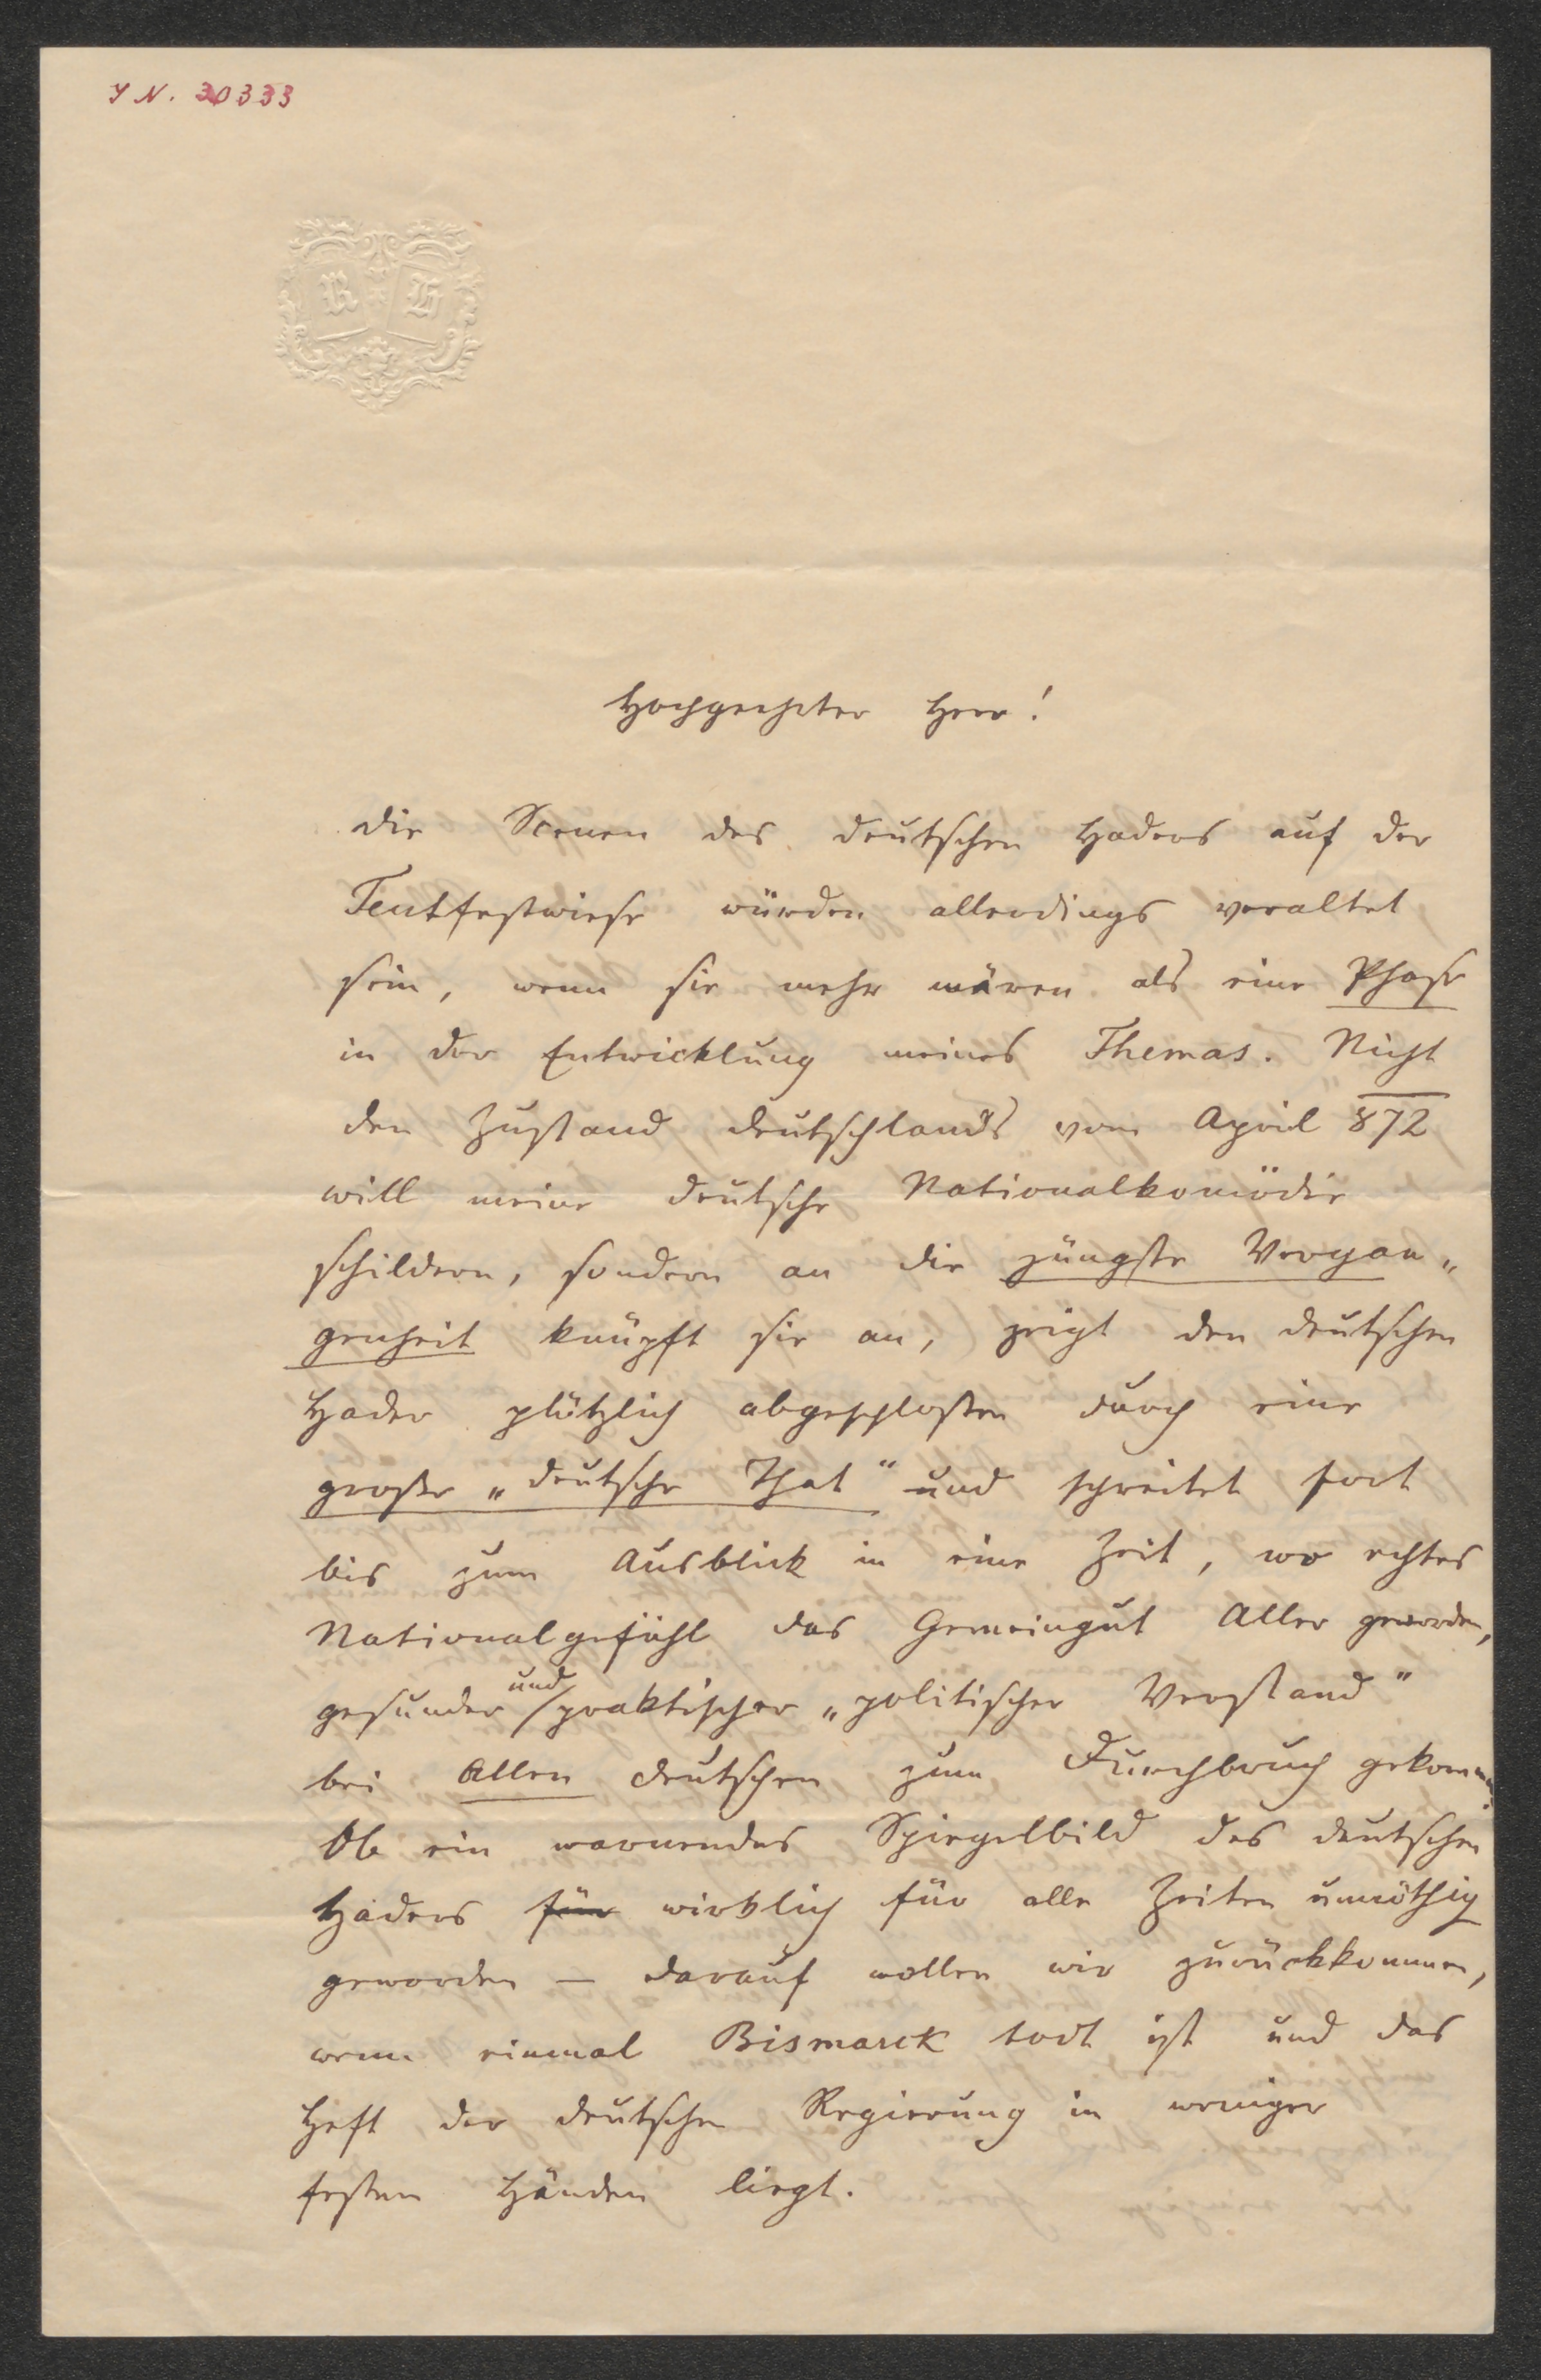 I N. 30333
R H
Hochgeehrter Herr!
Die Scenen des deutschen Haders auf der
Teutfestwiese würden allerdings veraltet
sein, wenn sie mehr wären als eine Phase
in der Entwicklung meines Themas. Nicht
den Zustand Deutschlands vom April 872
will meine deutsche Nationalkomödie
schildern, sondern an die jüngste Vergan„
genheit knüpft sie an, zeigt den deutschen
Hader plötzlich abgeschlossen durch eine
große „deutsche That“ und schreitet fort
bis zum Ausblick in eine Zeit, wo echtes
Nationalgefühl das Gemeingut Aller geworden,
gesunder und praktischer „politischer Verstand“
bei Allen Deutschen zum Durchbruch gekommen.
Ob ein warnendes Spiegelbild des deutschen
Haders für wirklich für alle Zeiten unnöthig
geworden — darauf wollen wir zurückkommen,
wenn einmal Bismarck todt ist und das
Heft der deutschen Regierung in weniger
festen Händen liegt.